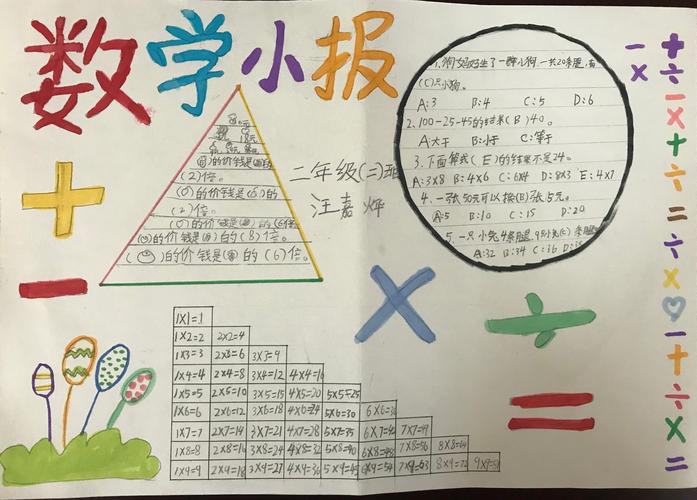 数学小报
二年级(二)班
汪嘉烨
18元
的价钱是
(2)倍。
的价钱是(6)的
(2)倍。
的价钱是的(6)倍
的价钱是的(8)倍。
的价钱是的(6)倍。
1.狗妈妈生了一群小狗,一共20条腿,有
(C)只小狗。
A:3 B:4 C:5 D:6
2.100-25-45的结果(B)40。
A:大于 B:小于 C:等于
3.下面算式(E)的结果不是24。
A:3×8 B:4×6 C:6×4 D:8×3 E:4×7
4.一张50元可以换(B)张5元。
A:5 B:10 C:15 D:20
5.一只小兔4条腿,9只小兔(C)条腿
A:32 B:34 C:36 D:38
1×1=1
1×2=2 2×2=4
1×3=3 2×3=6 3×3=9
1×4=4 2×4=8 3×4=12 4×4=16
1×5=5 2×5=10 3×5=15 4×5=20 5×5=25
1×6=6 2×6=12 3×6=18 4×6=24 5×6=30 6×6=36
1×7=7 2×7=14 3×7=21 4×7=28 5×7=35 6×7=42 7×7=49
1×8=8 2×8=16 3×8=24 4×8=32 5×8=40 6×8=48 7×8=56 8×8=64
1×9=9 2×9=18 3×9=27 4×9=36 5×9=45 6×9=54 7×9=63 8×9=72 9×9=81